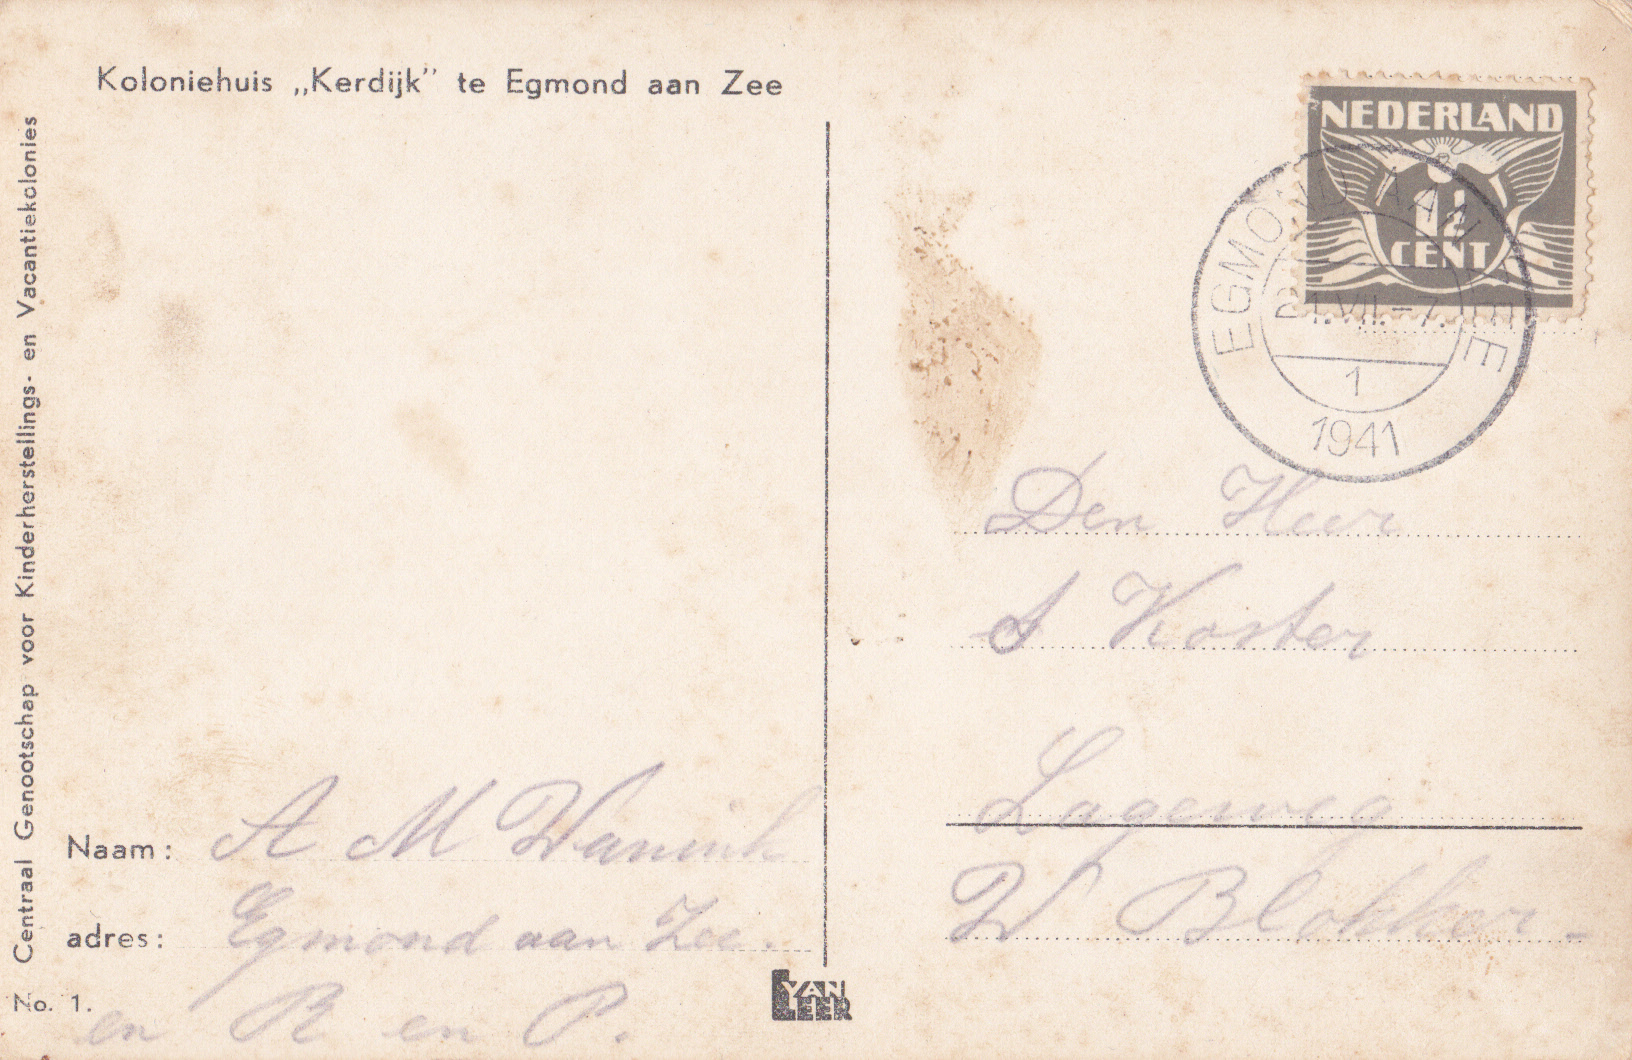 Koloniehuis „Kerdijk” te Egmond aan Zee
Centraal Genootschap voor Kinderherstellings- en Vacantiekolonies
NEDERLAND
1½
CENT
EGMOND AAN ZEE
21.VII.-7.
1
1941
Den Heer
S Koster
Lageweg
W Blokker.
Naam: A M Wanink
adres: Egmond aan Zee.
en R en P.
No. 1.
VAN
LEER